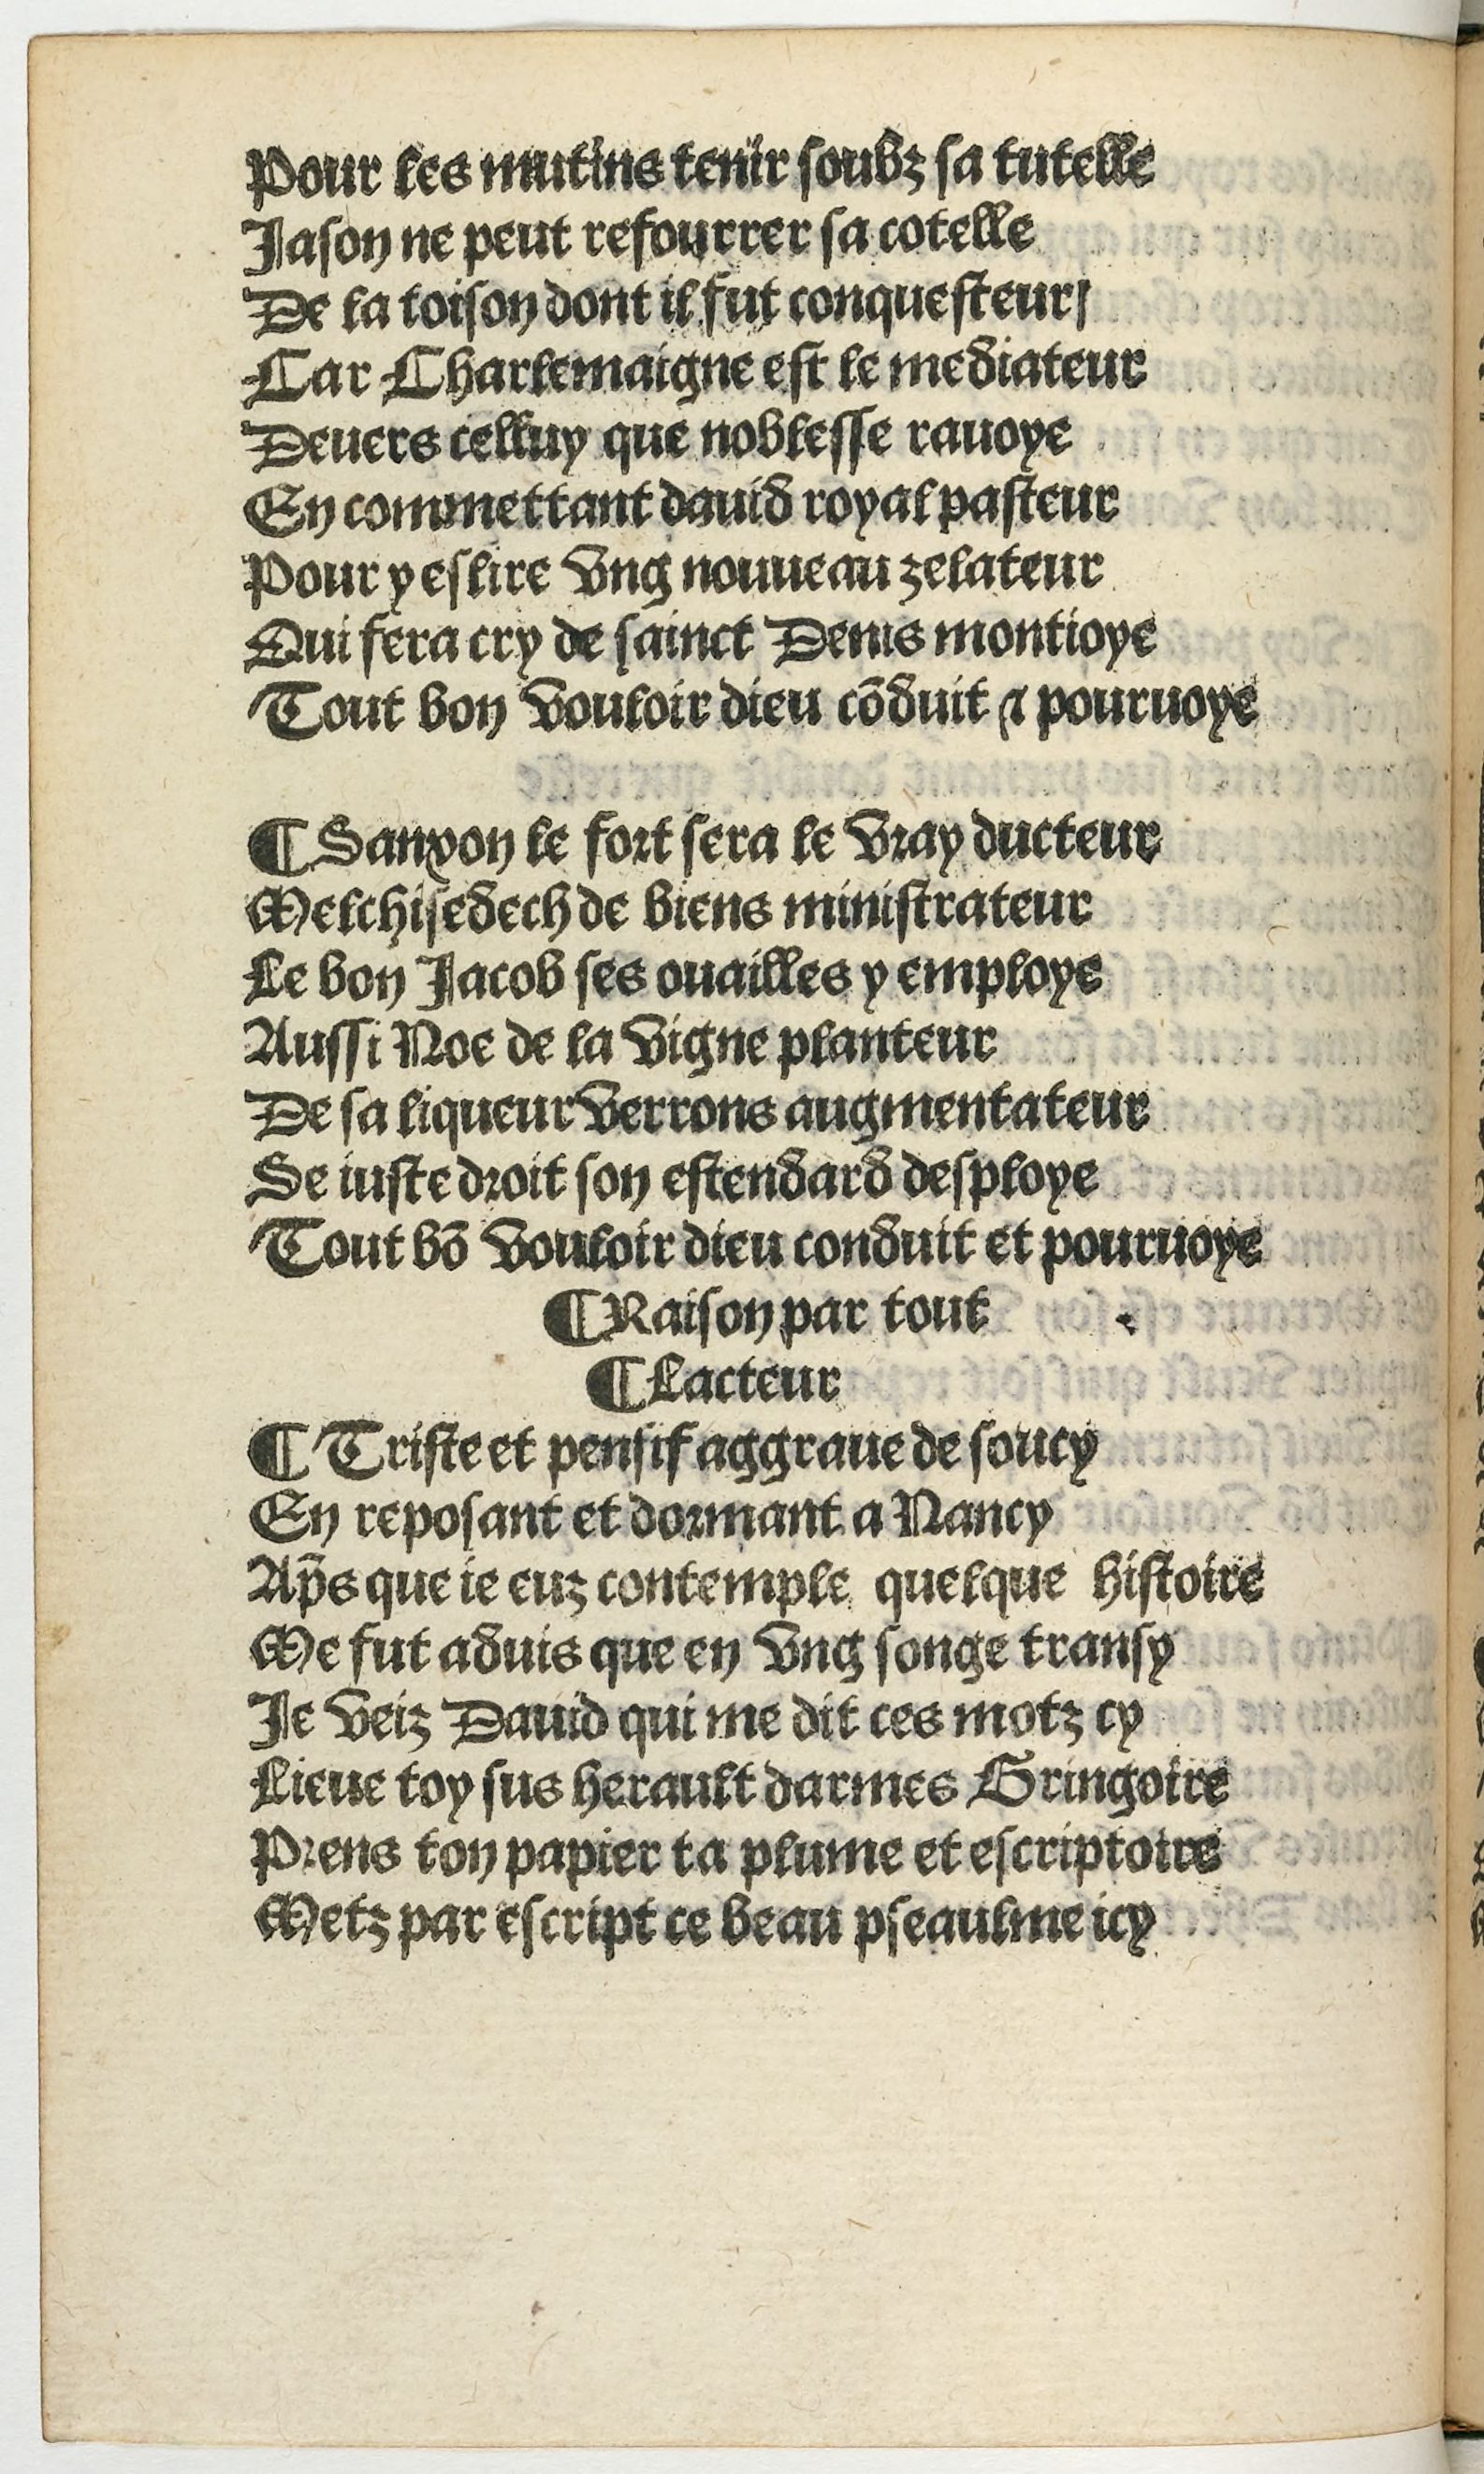 Pour les mutins tenir soubz sa tutelle
Jason ne peut refourrer sa cotelle
De la toison dont il fut conquesteur/
Car Charlemaigne est le mediateur
Deuers celluy que noblesse rauoye
En commettant dauid royal pasteur
Pour y eslire vng nouueau zelateur
Qui fera cry de sainct Denis montioye
Tout bon vouloir dieu cōduit ⁊ pouruoye
¶ Sanxon le fort sera le vray ducteur
Melchisedech de biens ministrateur
Le bon Jacob ses ouailles y employe
Aussi Noe de la vigne planteur
De sa liqueur verrons augmentateur
Se iuste droit son estendard desploye
Tout bō vouloir dieu conduit et pouruoye
¶ Raison par tout
¶ Lacteur
¶ Triste et pensif aggraue de soucy
En reposant et dormant a Nancy
Ap̄s que ie euz contemple quelque histoire
Me fut aduis que en vng songe transy
Je veiz Dauid qui me dit ces motz cy
Lieue toy sus herault darmes Gringoire
Prens ton papier ta plume et escriptoire
Metz par escript ce beau pseaulme icy